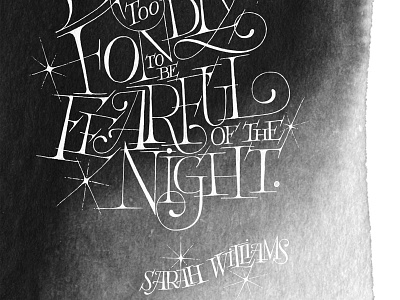 TOO
FONDLY
TO
BE
FEARFUL
OF THE
NIGHT.
SARAH WILLIAMS